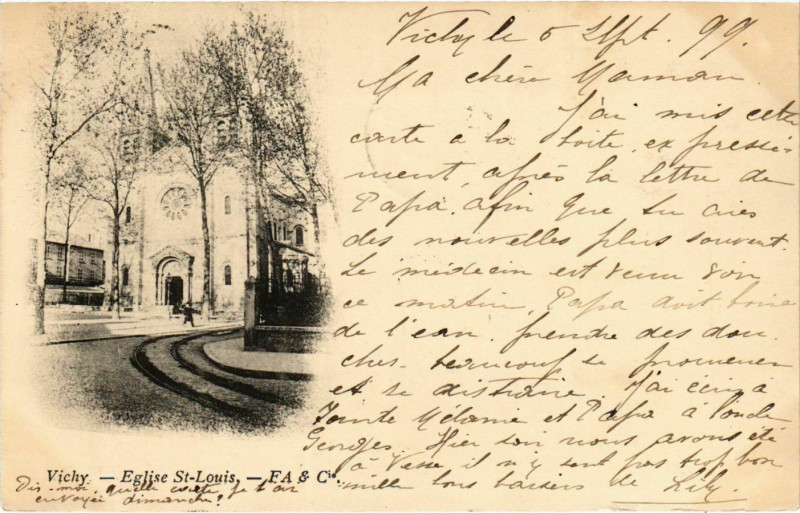 Vichy le 5 Sept. 99.
Ma chère Maman
J'ai mis cette
carte a la boite, expressé-
ment, après la lettre de
Papa. afin que tu aies
des nouvelles plus souvent.
Le médecin est venu voir
ce matin, Papa doit boire
de l'eau. prendre des dou
ches. beaucoup se promener
et se distraire. J'ai écrit à
Tante Mélanie et Papa à l'oncle
Georges. Hier soir nous avons été
à Vesse il n'y sent pas trop bon
mille bons baisers de Lily.
Vichy. — Eglise St-Louis. — FA & Cie.
Dis-moi, quelle carte je t'ai
envoyée dimanche?